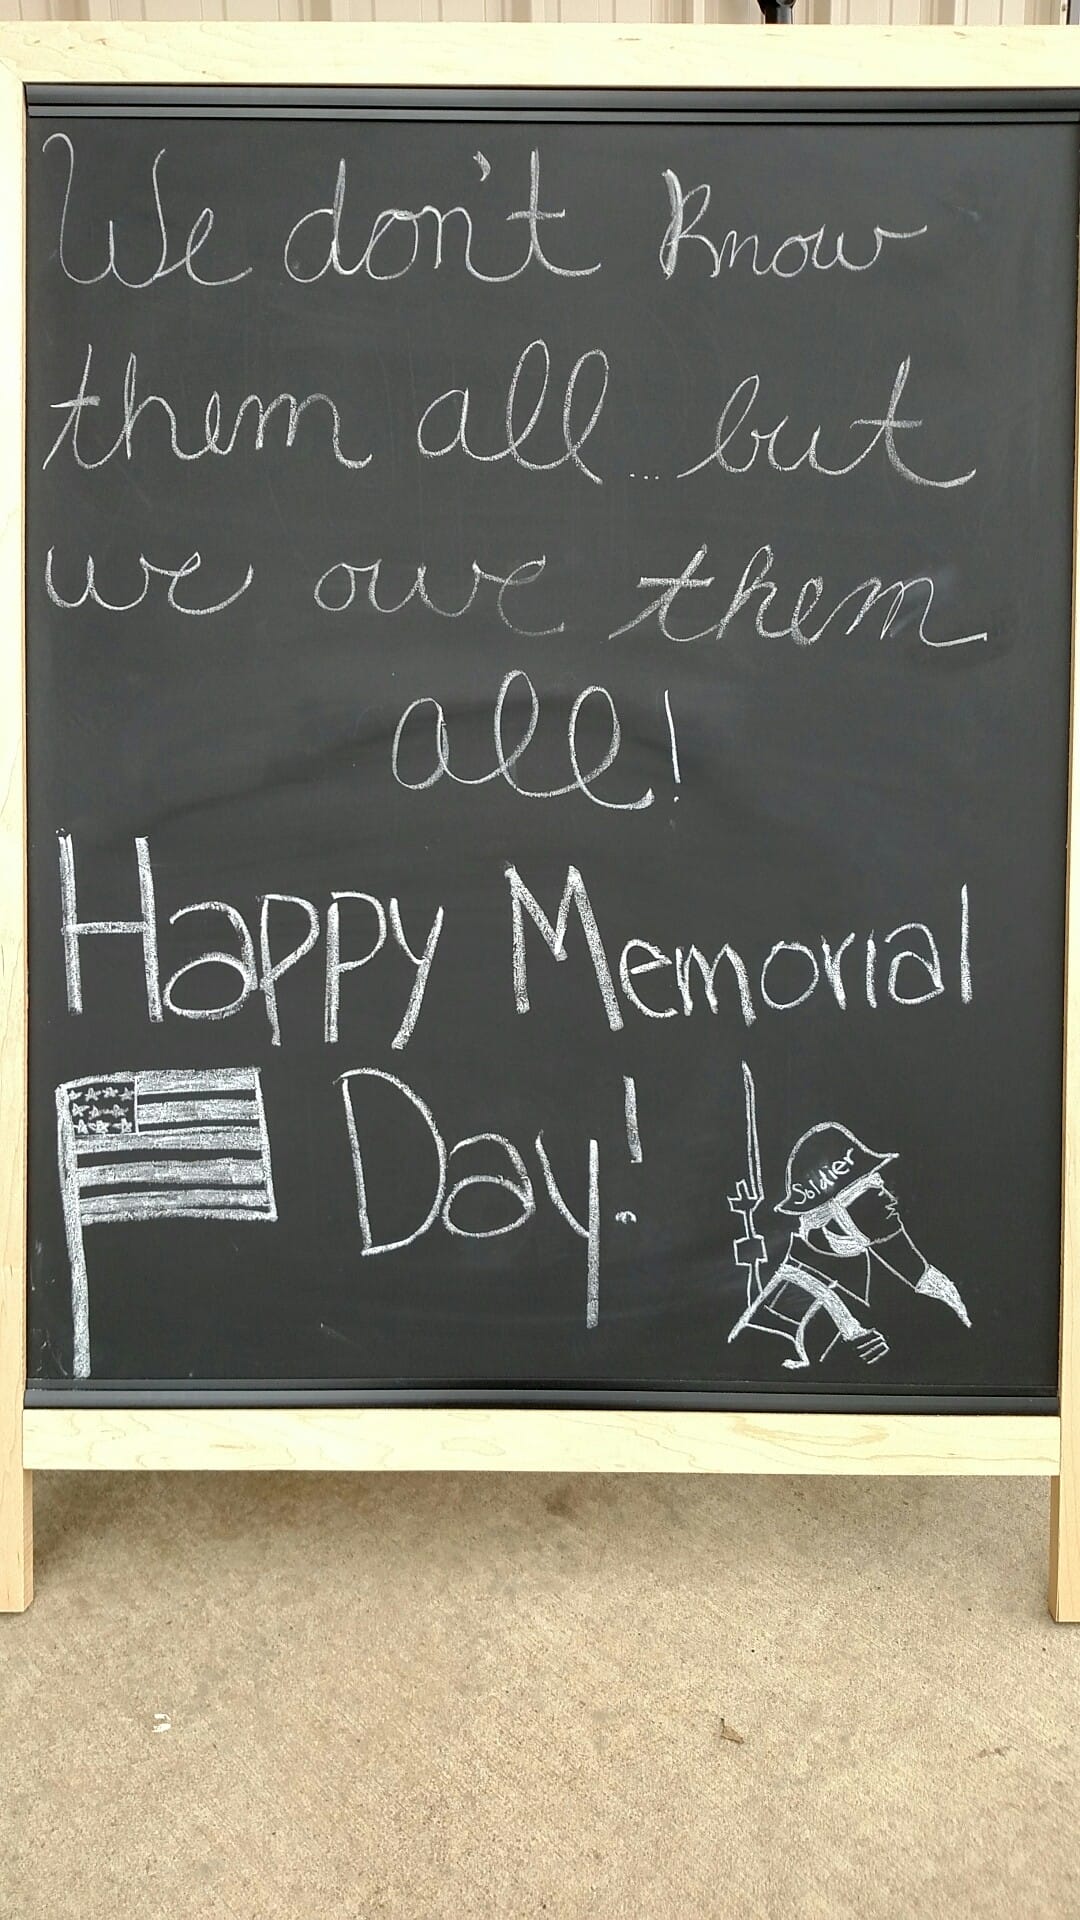 We don't Know
them all... but
we owe them
all!
Happy Memorial
Day!
Soldier